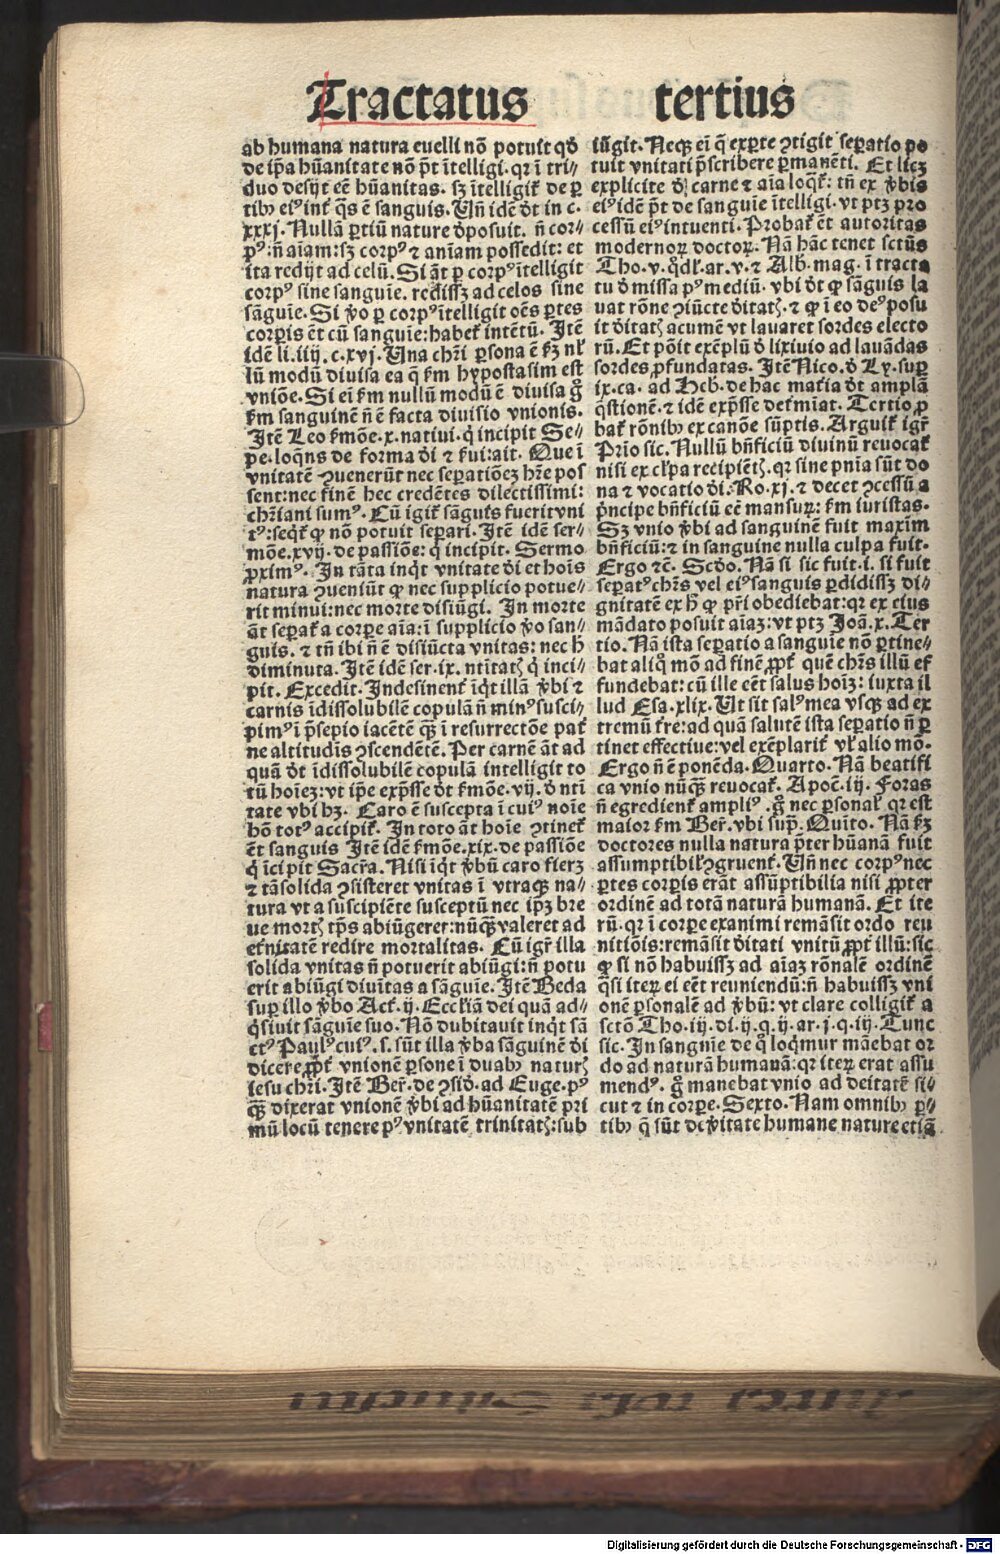 Tractatus tertius
ab humana natura euelli nō potuit qđ
de ip̄a hūanitate nō p̄t ītelligi. qr ī tri⸗
duo desijt eē hūanitas. sȝ ītelligiť de p̲
tibꝫ eiꝰ inť q̄s ē sanguis. Vn̄ idē d̄t in c.
xxxj. Nullā p̲tiū nature d̄posuit. n̄ cor⸗
pꝰ: n̄ aīam: sȝ corpꝰ ⁊ anīam possedit: et
ita redijt ad celū. Si āt p̲ corpꝰ ītelligit
corpꝰ sine sanguīe. redissȝ ad celos sine
sāguīe. Si v̄o p̲ corpꝰ ītelligit oēs p̲tes
corp̲is ēt cū sanguīe: habeť intētū. Itē
idē li. iiij. c. xvj. Una chr̄i p̲sona ē ⁊ ẜȝ nł
lū modū diuisa ea q̄ ẜm hypostasim est
vniōe. Si ei ẜm nullū modū ē diuisa ḡ
ẜm sanguinē n̄ ē facta diuisio vnionis.
Itē Leo ẜmōe. x. natiui. q̇ incipit Se⸗
pe. loq̄ns de forma dī ⁊ ẜui: ait. Que ī
vnitatē ꝯuenerūt nec sep̲atiōeȝ hr̄e pos
sent: nec finē hec credētes dilectissimi:
chr̄iani sumꝰ. Cū igiť sāguis fuerit vni
tꝰ: seq̇ť ꝙ nō potuit sep̲ari. Itē idē ser⸗
mōe. xvij. de passiōe: q̇ incipit. Sermo
ꝓximꝰ. In tāta inq̇t vnitate dī et hoīs
natura ꝯueniūt ꝙ nec supplicio potue⸗
rit minui: nec morte disiūgi. In morte
āt sep̲aťa corp̲e aīa: ī supplicio v̄o san⸗
guis. ⁊ tn̄ ibi n̄ ē disiūcta vnitas: nec h̄
diminuta. Itē idē ser. ix. ntītatꝭ q̇ inci⸗
pit. Excedit. Indesinenť īq̇t illā v̄bi ⁊
carnis īdissolubilē copulā n̄ minꝰ susci⸗
pimꝰ ī p̄sepio iacētē q̄ꝫ ī resurrectōe pať
ne altitudīs ꝯscendētē. Per carnē āt ad
quā d̄t īdissolubilē copulā intelligit to
tū hoīeȝ: vt ip̄e exp̄sse d̄t ẜmōe. vij. d̄ nti
tate vbi hȝ. Caro ē suscepta ī cuiꝰ noīe
hō totꝰ accipiť. In toto āt hoīe ꝯtineť
ēt sanguis Itē idē ẜmōe. xix. de passiōe
q̇ īcipit Sacr̄a. Nisi īq̇t v̄bū caro fierȝ
⁊ tā solida ꝯsisteret vnitas ī vtraqꝫ na⸗
tura vt a suscipiēte susceptū nec ip̄ȝ bre
ue mortꝭ tp̄s abiūgerer: nūq̄ꝫ valeret ad
eťnitatē redire mortalitas. Cū igr̄ illa
solida vnitas n̄ potuerit abiūgi: n̄ potu
erit abiūgi diuītas a sāguīe. Itē Beda
sup̲ illo v̄bo Acť. ij. Eccłiā dei quā ad⸗
q̇siuit sāguīe suo. Nō dubitauit inq̇t sā
ctꝰ Paulꝰ cuiꝰ. s. sūt illa v̄ba sāguinē dī
dicere ꝓpť vnionē p̲sone ī duabꝫ naturꝭ
iesu chr̄i. Itē Ber̄. de ꝯsid̄. ad Euge. pꝰ
q̄ꝫ dixerat vnionē v̄bi ad hūanitatē pri
mū locū tenere pꝰ vnitatē trinitatꝭ: sub
iūgit. Neqꝫ ei q̄ exp̲te ꝯtigit sep̲atio po
tuit vnitati p̄scribere p̲manēti. Et licȝ
explicite d̄ carne ⁊ aīa loq̇ť: tn̄ ex v̄bis
eiꝰ idē p̄t de sanguīe ītelligi. vt ptȝ pro
cessū eiꝰ intuenti. Probať ēt autoritas
modernoꝝ doctoꝝ. Nā hāc tenet sctūs
Tho. v. q̄dł. ar. v. ⁊ Alb. mag. ī tracta
tu d̄ missa pꝰ mediū. vbi d̄t ꝙ sāguis la
uat rōne ꝯiūcte d̄itatꝭ. ⁊ ꝙ ī eo deꝰ posu
it d̄itatꝭ acumē vt lauaret sordes electo
rū. Et pōit exēplū d̄ lixiuio ad lauādas
sordes ꝓfundatas. Itē Nico. d̄ Ly. sup̲
ix. ca. ad Heb. de hac mať̄ia d̄t amplā
q̄stionē. ⁊ idē exp̄sse deťmīat. Tertio ꝓ
bať rōnibꝫ ex canōe sūptis. Arguiť igr̄
Prīo sic. Nullū bn̄ficiū diuinū reuocať
nisi ex cłpa recipiētꝭ. qr sine pnīa sūt do
na ⁊ vocatio dī. Ro. xj. ⁊ decet ꝯcessū a
p̄ncipe bn̄ficiū eē mansuꝝ: ẜm iuristas.
Sȝ vnio v̄bi ad sanguinē fuit maxīm
bn̄ficiū: ⁊ in sanguine nulla culpa fuit.
Ergo ⁊c̄. Scd̄o. Nā si sic fuit. i. si fuit
sep̲atꝰ chr̄s vel eiꝰ sanguis p̲didissȝ di⸗
gnitatē ex h̄ ꝙ pr̄i obediebat: qr ex eius
mādato posuit aīaȝ: vt ptȝ Joā. x. Ter
tio. Nā ista sep̲atio a sanguīe nō p̲tine⸗
bat aliq̄ mō ad finē ꝓpť quē chr̄s illū ef
fundebat: cū ille eēt salus hoīȝ: iuxta il
lud Esa. xlix. Ut sit salꝰ mea vsqꝫ ad ex
tremū ťre: ad quā salutē ista sep̲atio n̄ p̲
tinet effectiue: vel exēplariť vł alio mō.
Ergo n̄ ē ponēda. Quarto. Nā beatifi
ca vnio nūq̄ꝫ reuocať. Apoc̄. iij. Foras
n̄ egredienť ampliꝰ. ḡ nec p̲sonał qr est
maior ẜm Ber̄. vbi sup̲. Quīto. Nā ẜȝ
doctores nulla natura p̄ter hūanā fuit
assumptibił ꝯgruenť. Un̄ nec corpꝰ nec
p̲tes corp̲is erāt assūptibilia nisi ꝓpter
ordinē ad totā naturā humanā. Et ite
rū. qr ī corp̲e exanimi remāsit ordo reu
nitiōis: remāsit d̄itati vnitū ꝓpť illū: sic
ꝙ si nō habuissȝ ad aīaȝ rōnalē ordinē
q̄si iteꝝ ei eēt reuniendū: n̄ habuissȝ vni
onē p̲sonalē ad v̄bū: vt clare colligiť a
sctō Tho. iij. di. ij. q. ij. ar. j. q. iij. Tunc
sic. In sanguīe de q̇ loq̇mur māebat or
do ad naturā humanā: qr iteꝝ erat assu
mendꝰ. ḡ manebat vnio ad deitatē si⸗
cut ⁊ in corp̲e. Sexto. Nam omnibꝫ p̲⸗
tibꝫ q̄ sūt de v̄itate humane nature etiā
Digitalisierung gefördert durch die Deutsche Forschungsgemeinschaft - DFG